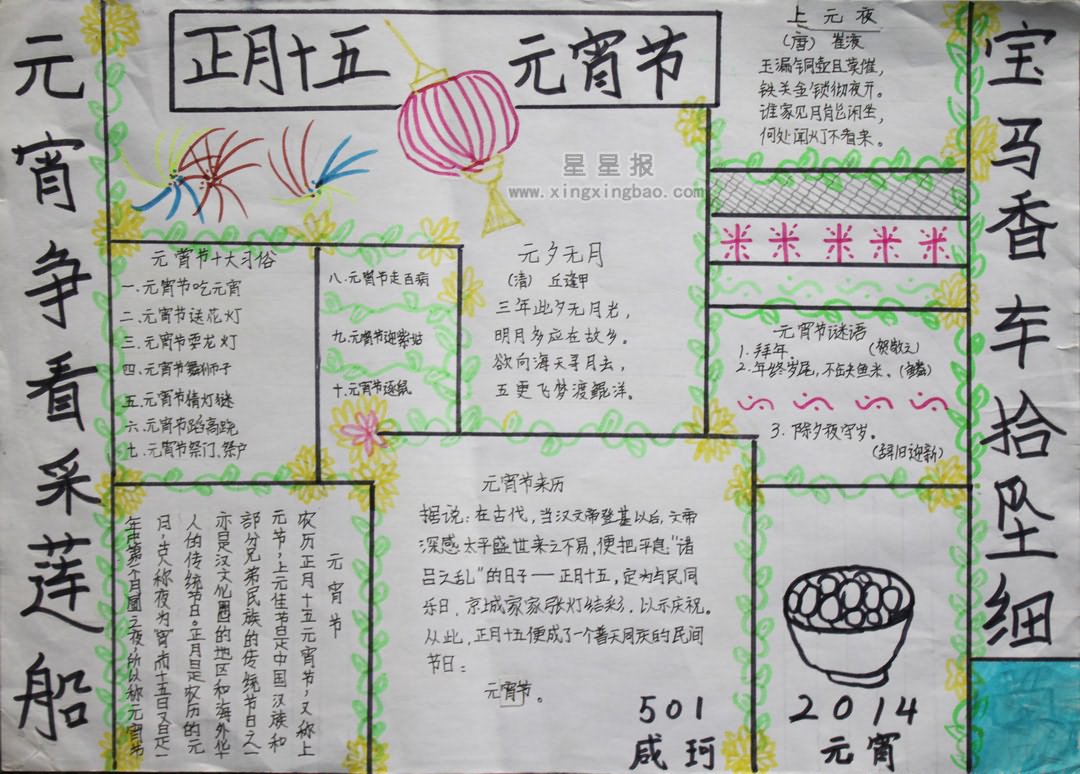 正月十五 元宵节
元宵争看采莲船
宝马香车拾坠细
星星报
www.xingxingbao.com
上元夜
(唐) 崔液
玉漏铜壶且莫催，
铁关金锁彻夜开。
谁家见月能闲坐，
何处闻灯不看来。
元宵节十大习俗
一.元宵节吃元宵
二.元宵节送花灯
三.元宵节耍龙灯
四.元宵节舞狮子
五.元宵节猜灯谜
六.元宵节踏高跷
七.元宵节祭门、祭户
八.元宵节走百病
九.元宵节迎紫姑
十.元宵节逐鼠
元夕无月
(清) 丘逢甲
三年此夕无月光，
明月多应在故乡。
欲向海天寻月去，
五更飞梦渡鲲洋。
元宵节谜语
1.拜年。 (贺敬之)
2.年终岁尾，不缺鱼米。(鳞)
3.除夕夜守岁。
(辞旧迎新)
元宵节
农历正月十五元宵节，又称上
元节，上元佳节是中国汉族和
部分兄弟民族的传统节日之一
亦是汉文化圈的地区和海外华
人的传统节日。正月是农历的元
月，古人称夜为"宵"而十五日又是一
年中第一个月圆之夜，所以称元宵节
元宵节来历
据说：在古代，当汉文帝登基以后，文帝
深感太平盛世来之不易，便把平息"诸
吕之乱"的日子——正月十五，定为与民同
乐日，京城家家张灯结彩，以示庆祝。
从此，正月十五便成了一个普天同庆的民间
节日：
元宵节。
501
咸珂
2014
元宵